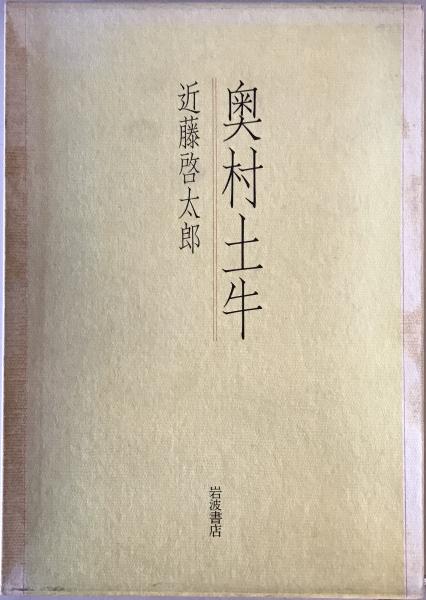 奥村土牛
近藤啓太郎
岩波書店